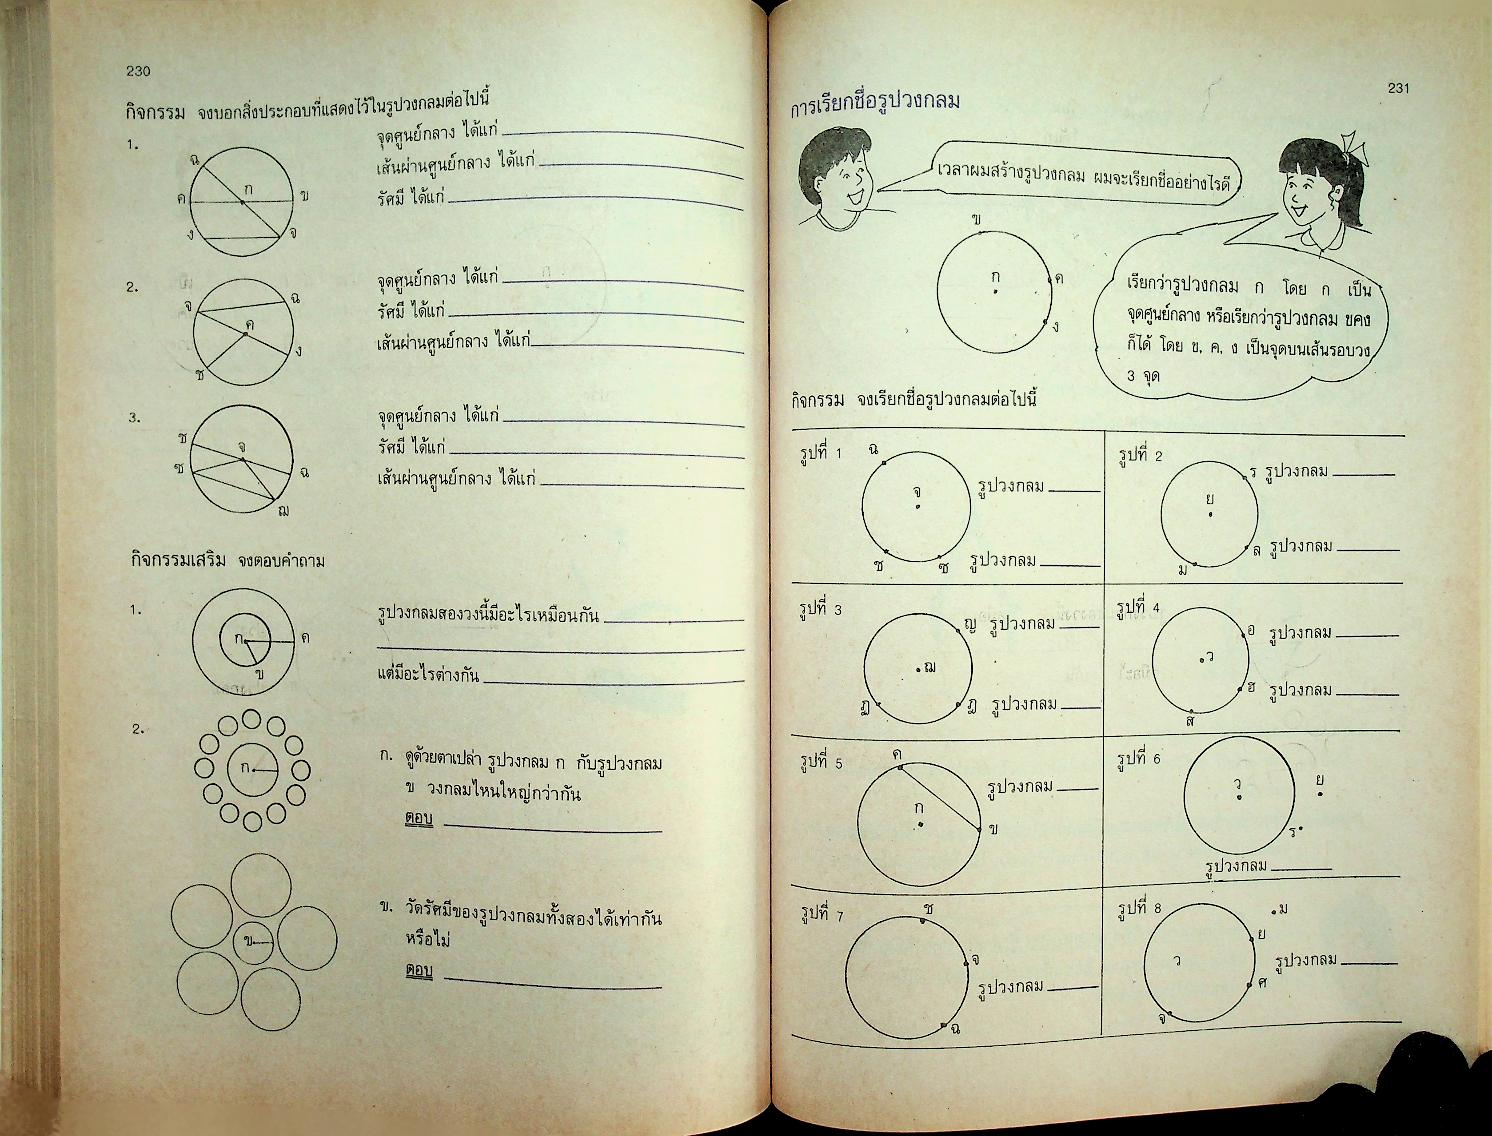 230
กิจกรรม จงบอกสิ่งประกอบที่แสดงไว้ในรูปวงกลมต่อไปนี้
1.
ฉ
ก
ค
ข
ง
จ
จุดศูนย์กลาง ได้แก่
เส้นผ่านศูนย์กลาง ได้แก่
รัศมี ได้แก่
2.
จ
ฉ
ค
ง
ช
จุดศูนย์กลาง ได้แก่
รัศมี ได้แก่
เส้นผ่านศูนย์กลาง ได้แก่
3.
ช
ซ
จ
ฉ
ฌ
จุดศูนย์กลาง ได้แก่
รัศมี ได้แก่
เส้นผ่านศูนย์กลาง ได้แก่
กิจกรรมเสริม จงตอบคำถาม
1.
ก
ค
ข
รูปวงกลมสองวงนี้มีอะไรเหมือนกัน
แต่มีอะไรต่างกัน
2.
ก
ก. ดูด้วยตาเปล่า รูปวงกลม ก กับรูปวงกลม
ข วงกลมไหนใหญ่กว่ากัน
ตอบ
ข
ข. วัดรัศมีของรูปวงกลมทั้งสองได้เท่ากัน
หรือไม่
ตอบ
231
การเรียกชื่อรูปวงกลม
เวลาผมสร้างรูปวงกลม ผมจะเรียกชื่ออย่างไรดี
ข
ก
ค
ง
เรียกว่ารูปวงกลม ก โดย ก เป็น
จุดศูนย์กลาง หรือเรียกว่ารูปวงกลม ขคง
ก็ได้ โดย ข, ค, ง เป็นจุดบนเส้นรอบวง
3 จุด
กิจกรรม จงเรียกชื่อรูปวงกลมต่อไปนี้
รูปที่ 1
ฉ
จ
ช
ซ
รูปวงกลม
รูปวงกลม
รูปที่ 2
ร
ย
ล
ม
รูปวงกลม
รูปวงกลม
รูปที่ 3
ญ
ฌ
ฎ
ฏ
รูปวงกลม
รูปวงกลม
รูปที่ 4
อ
ว
ฮ
ส
รูปวงกลม
รูปวงกลม
รูปที่ 5
ค
ก
ข
รูปวงกลม
รูปที่ 6
ว
ย
ร
รูปวงกลม
รูปที่ 7
ช
จ
ฉ
รูปวงกลม
รูปที่ 8
ม
ย
ว
ศ
จ
รูปวงกลม